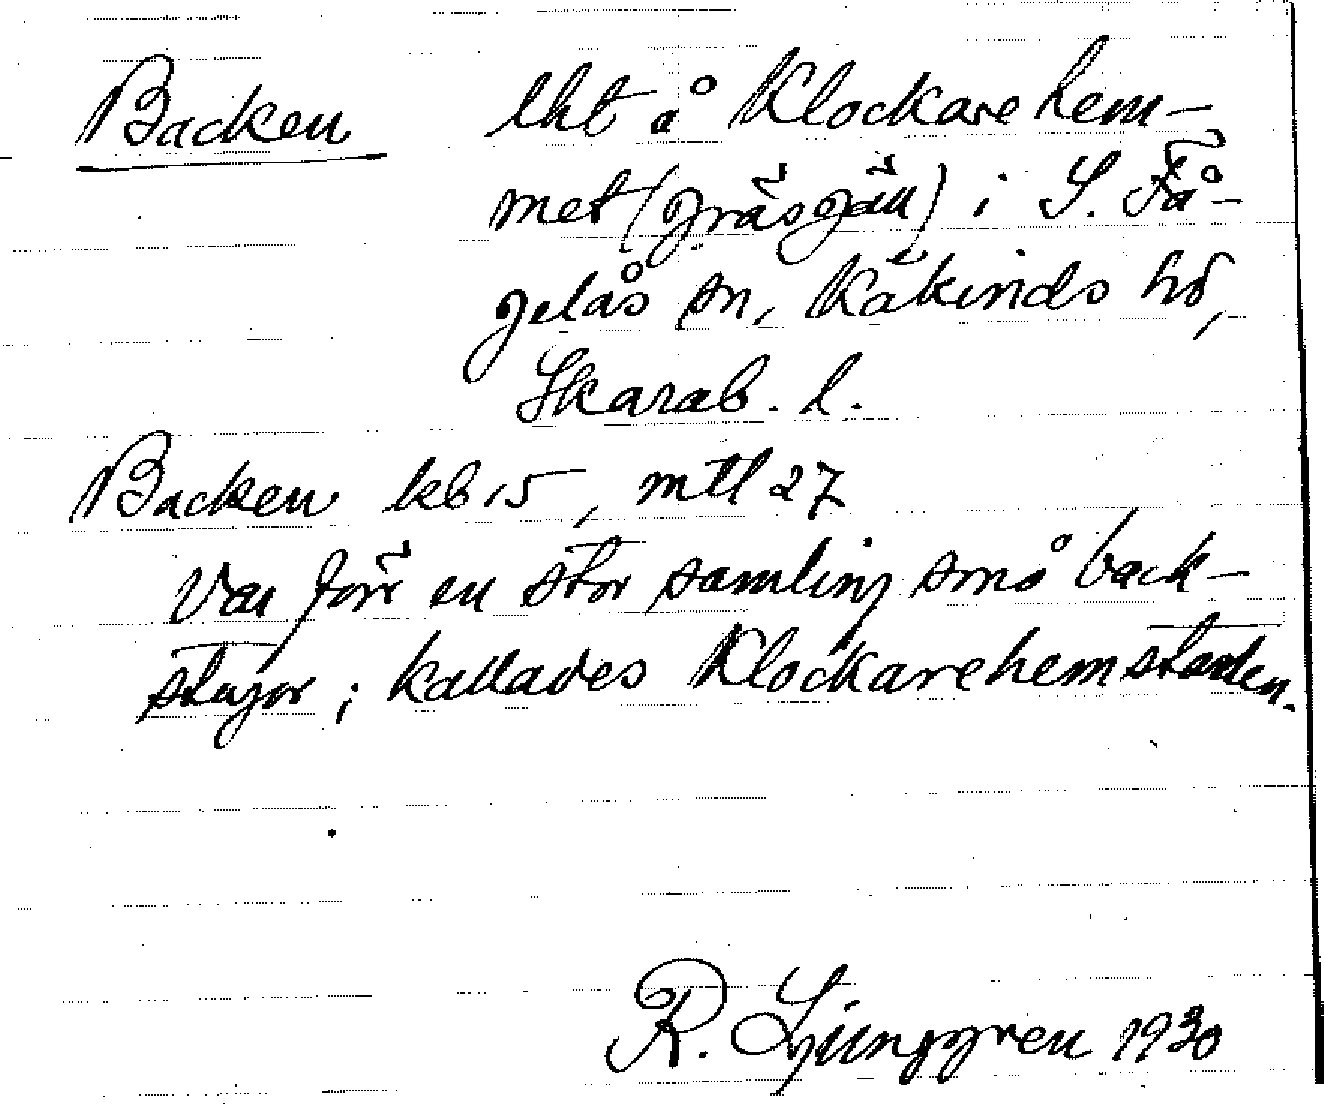 Backen lht å Klockarehem-
met (gräsgäll) i S. Få-
gelås sn, Kåkinds hd,
Skarab. l.
Backen kb 15, mtl 27
Var förr en stor samling små back-
stugor; kallades Klockarehemstaden.
R. Ljunggren 1930